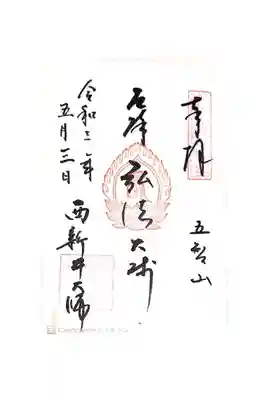 奉拝
五智山
厄除 弘法大師
西新井大師
令和三年
五月三日